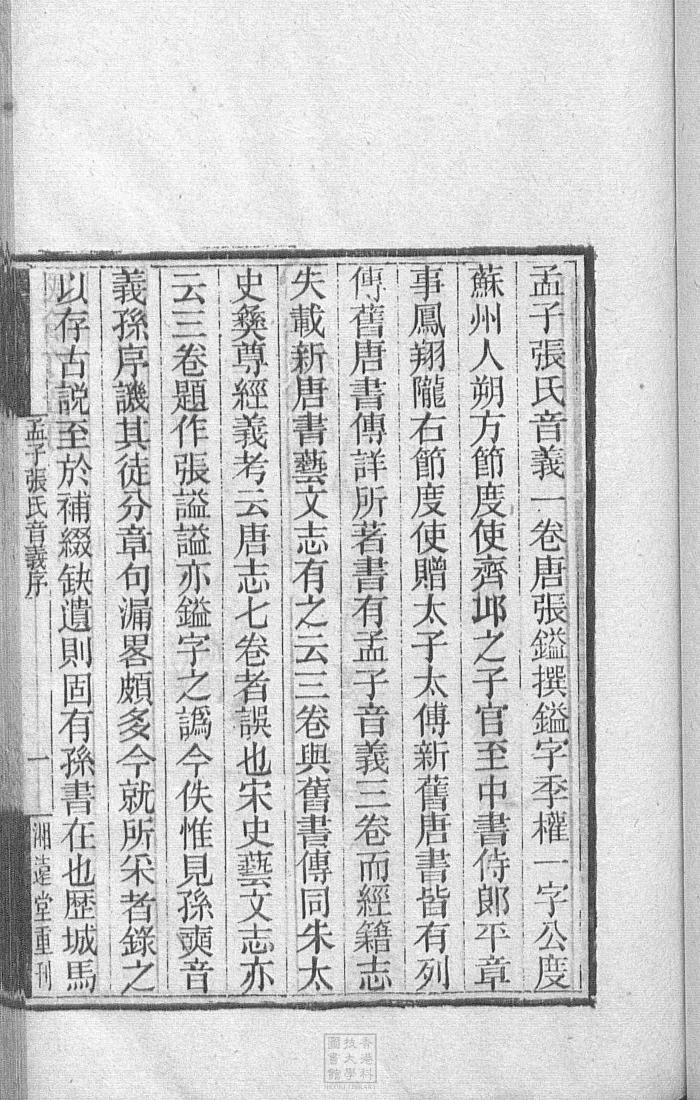 孟子張氏音義一卷唐張鎰撰鎰字季權一字公度
蘇州人朔方節度使齊邱之子官至中書侍郎平章
事鳳翔隴右節度使贈太子太傅新舊唐書皆有列
傳舊唐書傳詳所著書有孟子音義三卷而經籍志
失載新唐書藝文志有之云三卷與舊書傳同朱太
史彝尊經義考云唐志七卷者誤也宋史藝文志亦
云三卷題作張謚謚亦鎰字之譌今佚惟見孫奭音
義孫序譏其徒分章句漏畧頗多今就所采者錄之
以存古說至於補綴缺遺則固有孫書在也歷城馬
孟子張氏音義序
一
湘遠堂重刊
香港科
技大學
圖書館